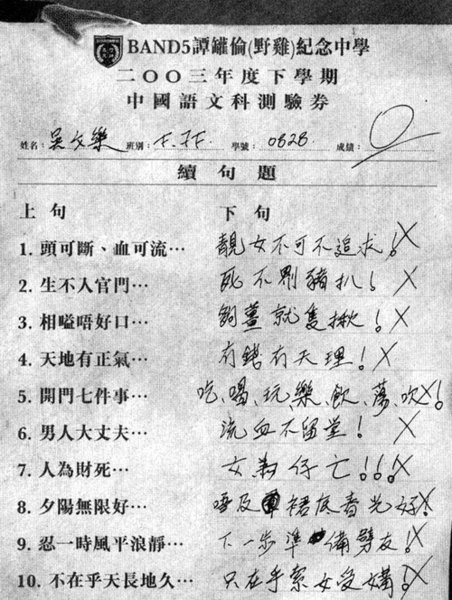 BAND5譚罐倫(野雞)紀念中學
二〇〇三年度下學期
中國語文科測驗券
姓名： 吳文樂 班別： F.5F. 學號： 0828. 成績： 0
續句題
上句 下句
1. 頭可斷、血可流… 靚女不可不追求！X
2. 生不入官門… 死不剛豬扒！X
3. 相嗌唔好口… 夠薑就隻揪！X
4. 天地有正氣… 有錢有天理！X
5. 開門七件事… 吃、喝、玩、樂、飲、蕩、吹X！
6. 男人大丈夫… 流血不留堂！X
7. 人為財死… 女為仔亡！！！X
8. 夕陽無限好… 唔及裙底春光好！X
9. 忍一時風平浪靜… 下一步準備劈友！X
10. 不在乎天長地久… 只在乎索女受媾！X